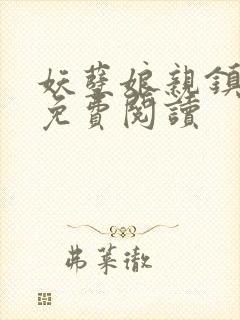 妖孽娘親鎮
免費閱讀
弗萊徹